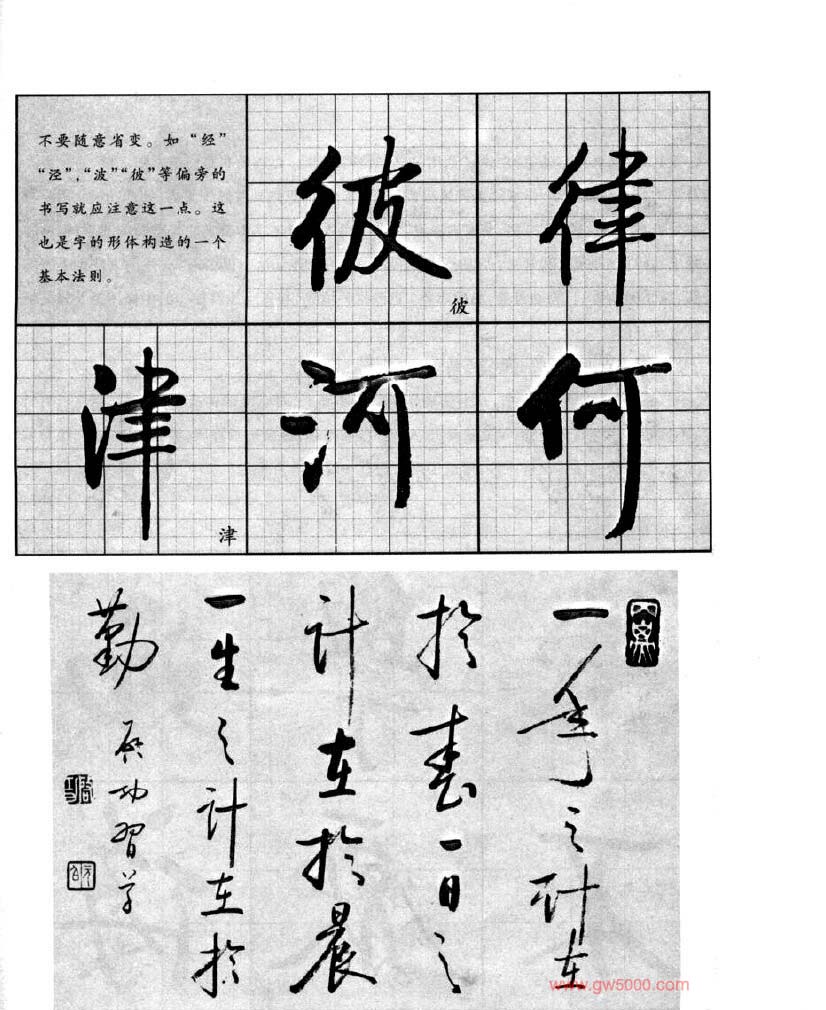 不要随意省变。如“经”
“泾”，“波”“彼”等偏旁的
书写就应注意这一点。这
也是字的形体构造的一个
基本法则。
彼
彼
律
津
津
河
何
一年之计在
於春一日之
计在於晨
一生之计在於
勤
启功习草
www.gw5000.com